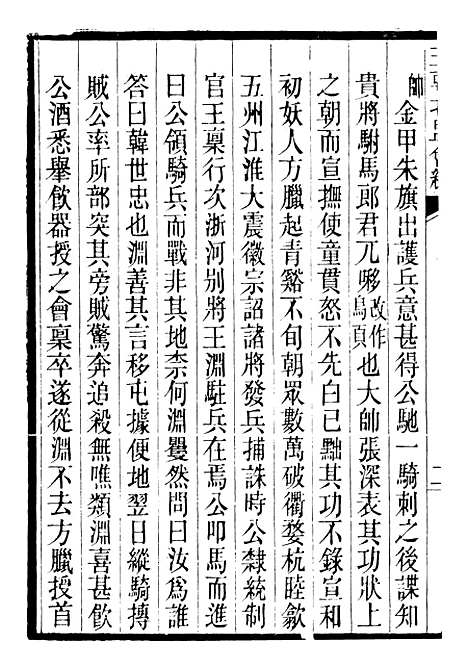 帥金甲朱旗出護兵意甚得公馳一騎刺之後諜知
貴將駙馬郎君兀㖇改作烏頁也大帥張深表其功狀上
之朝而宣撫使童貫怒不先白已黜其功不錄宣和
初妖人方臘起青谿不旬朝眾數萬破衢婺杭睦歙
五州江淮大震徽宗詔諸將發兵捕誅時公隸統制
官王稟行次浙河別將王淵駐兵在焉公叩馬而進
曰公領騎兵而戰非其地柰何淵矍然問曰汝爲誰
答曰韓世忠也淵善其言移屯據便地翌日縱騎摶
賊公率所部突其旁賊驚奔追殺無噍類淵喜甚飲
公酒悉舉飲器授之會稟卒遂從淵不去方臘授首